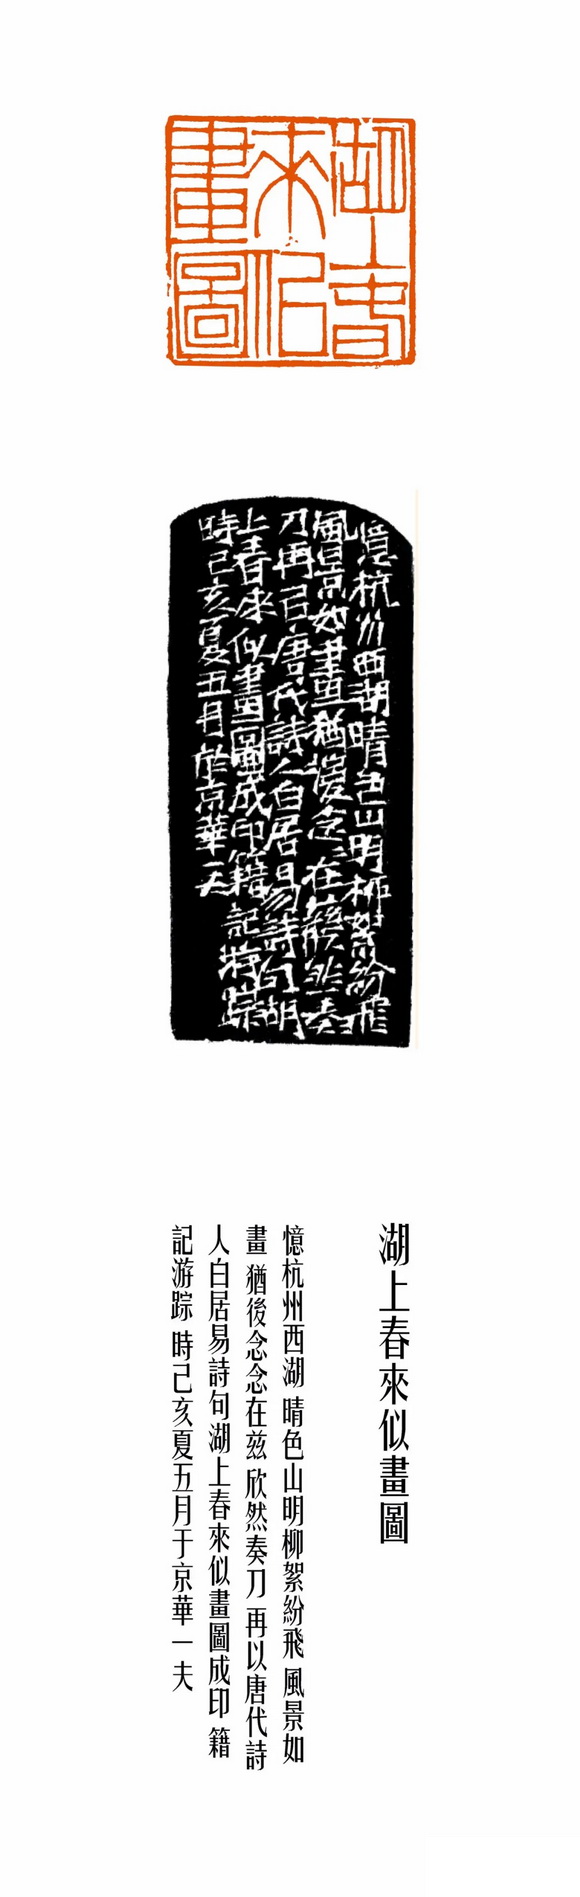 湖上春
來似
畫圖
憶杭州西湖晴色山明柳絮紛飛
風景如畫猶後念〻在兹欣然奏
刀再以唐代詩人白居易詩句湖
上春來似畫圖成印籍記游踪
時己亥夏五月於京華一夫
湖上春來似畫圖
憶杭州西湖 晴色山明柳絮紛飛 風景如
畫 猶後念念在兹 欣然奏刀 再以唐代詩
人白居易詩句湖上春來似畫圖成印 籍
記游踪 時己亥夏五月于京華 一夫